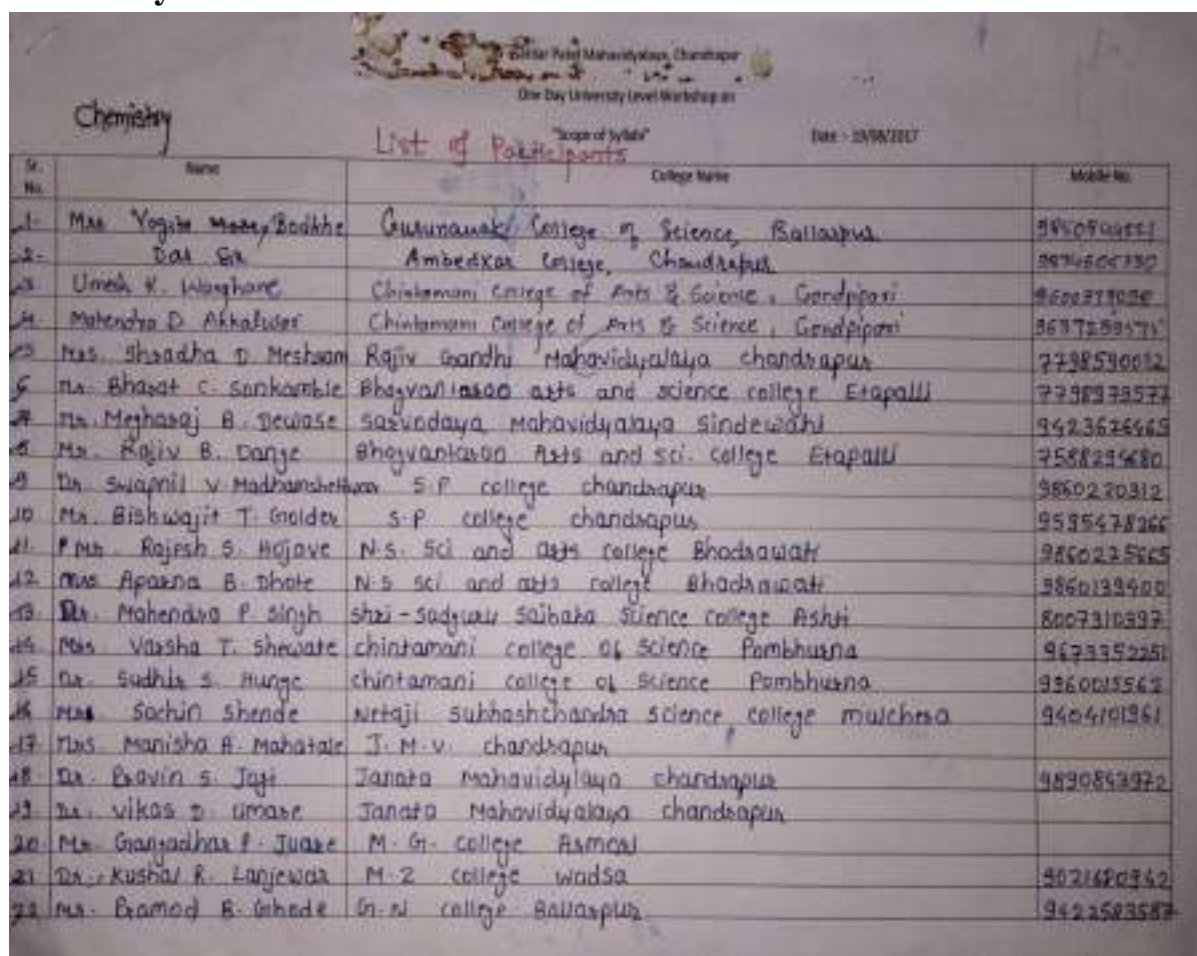 Sardar Patel Mahavidyalaya, Chandrapur
One Day University Level Workshop on
Chemistry
"Scope of Syllabi" Date :- 19/08/2017
List of Participants
Sr. No. Name College Name Mobile No.
1. Mrs Yogita Bodkhe Gurunanak College of Science, Ballarpur
2. Das Sir Ambedkar College, Chandrapur
3. Umesh K. Warghane Chintamani College of Arts & Science, Gondpipari
4. Mahendra D. Akkalwar Chintamani College of Arts & Science, Gondpipari
5 Mrs. Shradha D. Meshram Rajiv Gandhi Mahavidyalaya chandrapur 7798590012
6 Mr. Bharat C. Sonkamble Bhagvantarao arts and science college Etapalli 7798979577
7 Mr. Megharaj B. Dewase Sarvodaya Mahavidyalaya Sindewahi 9423626465
8 Mr. Rajiv B. Dange Bhagvantarao Arts and sci. college Etapalli 7588295680
9 Dr. Swapnil V. Madhamshettiwar S.P college chandrapur 9860220312
10 Mr. Bishwajit T. Golder S.P college chandrapur 9595478266
11. Rajesh S. Hajave N.S. Sci and arts college Bhadrawati 9860225665
12 Mrs Aparna B. Dhote N.S sci and arts college Bhadrawati 9860139400
13 Dr. Mahendra P. Singh Shri-Sadguru Saibaba Science college Ashti 8007310397
14. Mrs Varsha T. Shewate chintamani college of Science Pombhurna 9673352251
15 Dr. Sudhir S. Hunge chintamani college of Science Pombhurna
16 Sachin Shende Netaji Subhashchandra Science college mulchera 9404101961
17. Mrs. Manisha A. Mahatale J.M.V. chandrapur
18. Dr. Pravin S. Jogi Janata Mahavidylaya chandrapur 9890843972
19 Dr. Vikas D. Umare Janata Mahavidyalaya chandrapur
20. Mr. Gangadhar P. Juare M.G. College Armori
21 Dr. Kushal R. Lanjewar M.Z college wadsa 9021680942
22 Mr. Pramod B. Ghode G.N college Ballarpur 9422583587